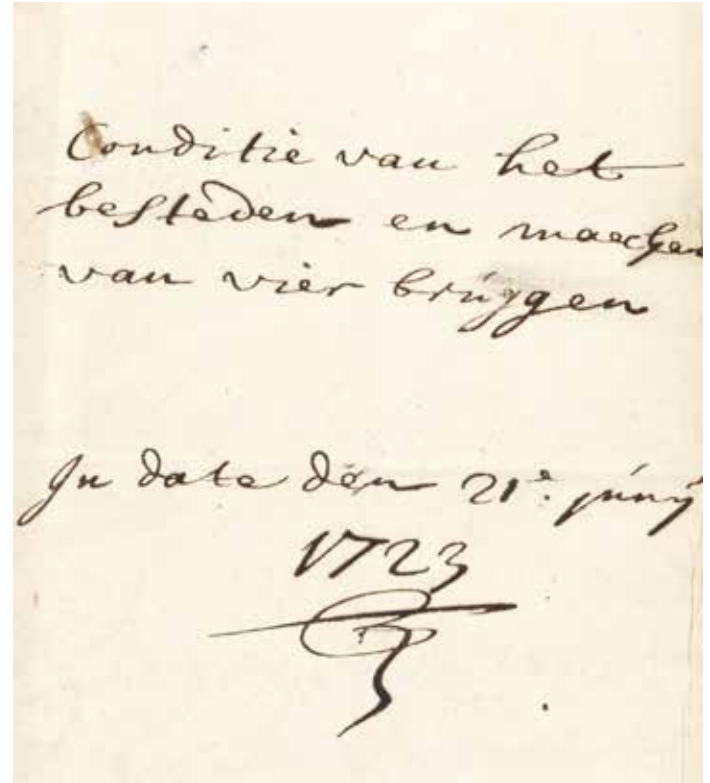 Conditie van het
besteden en maecken
van vier bruggen
In date den 21e. junij
1723